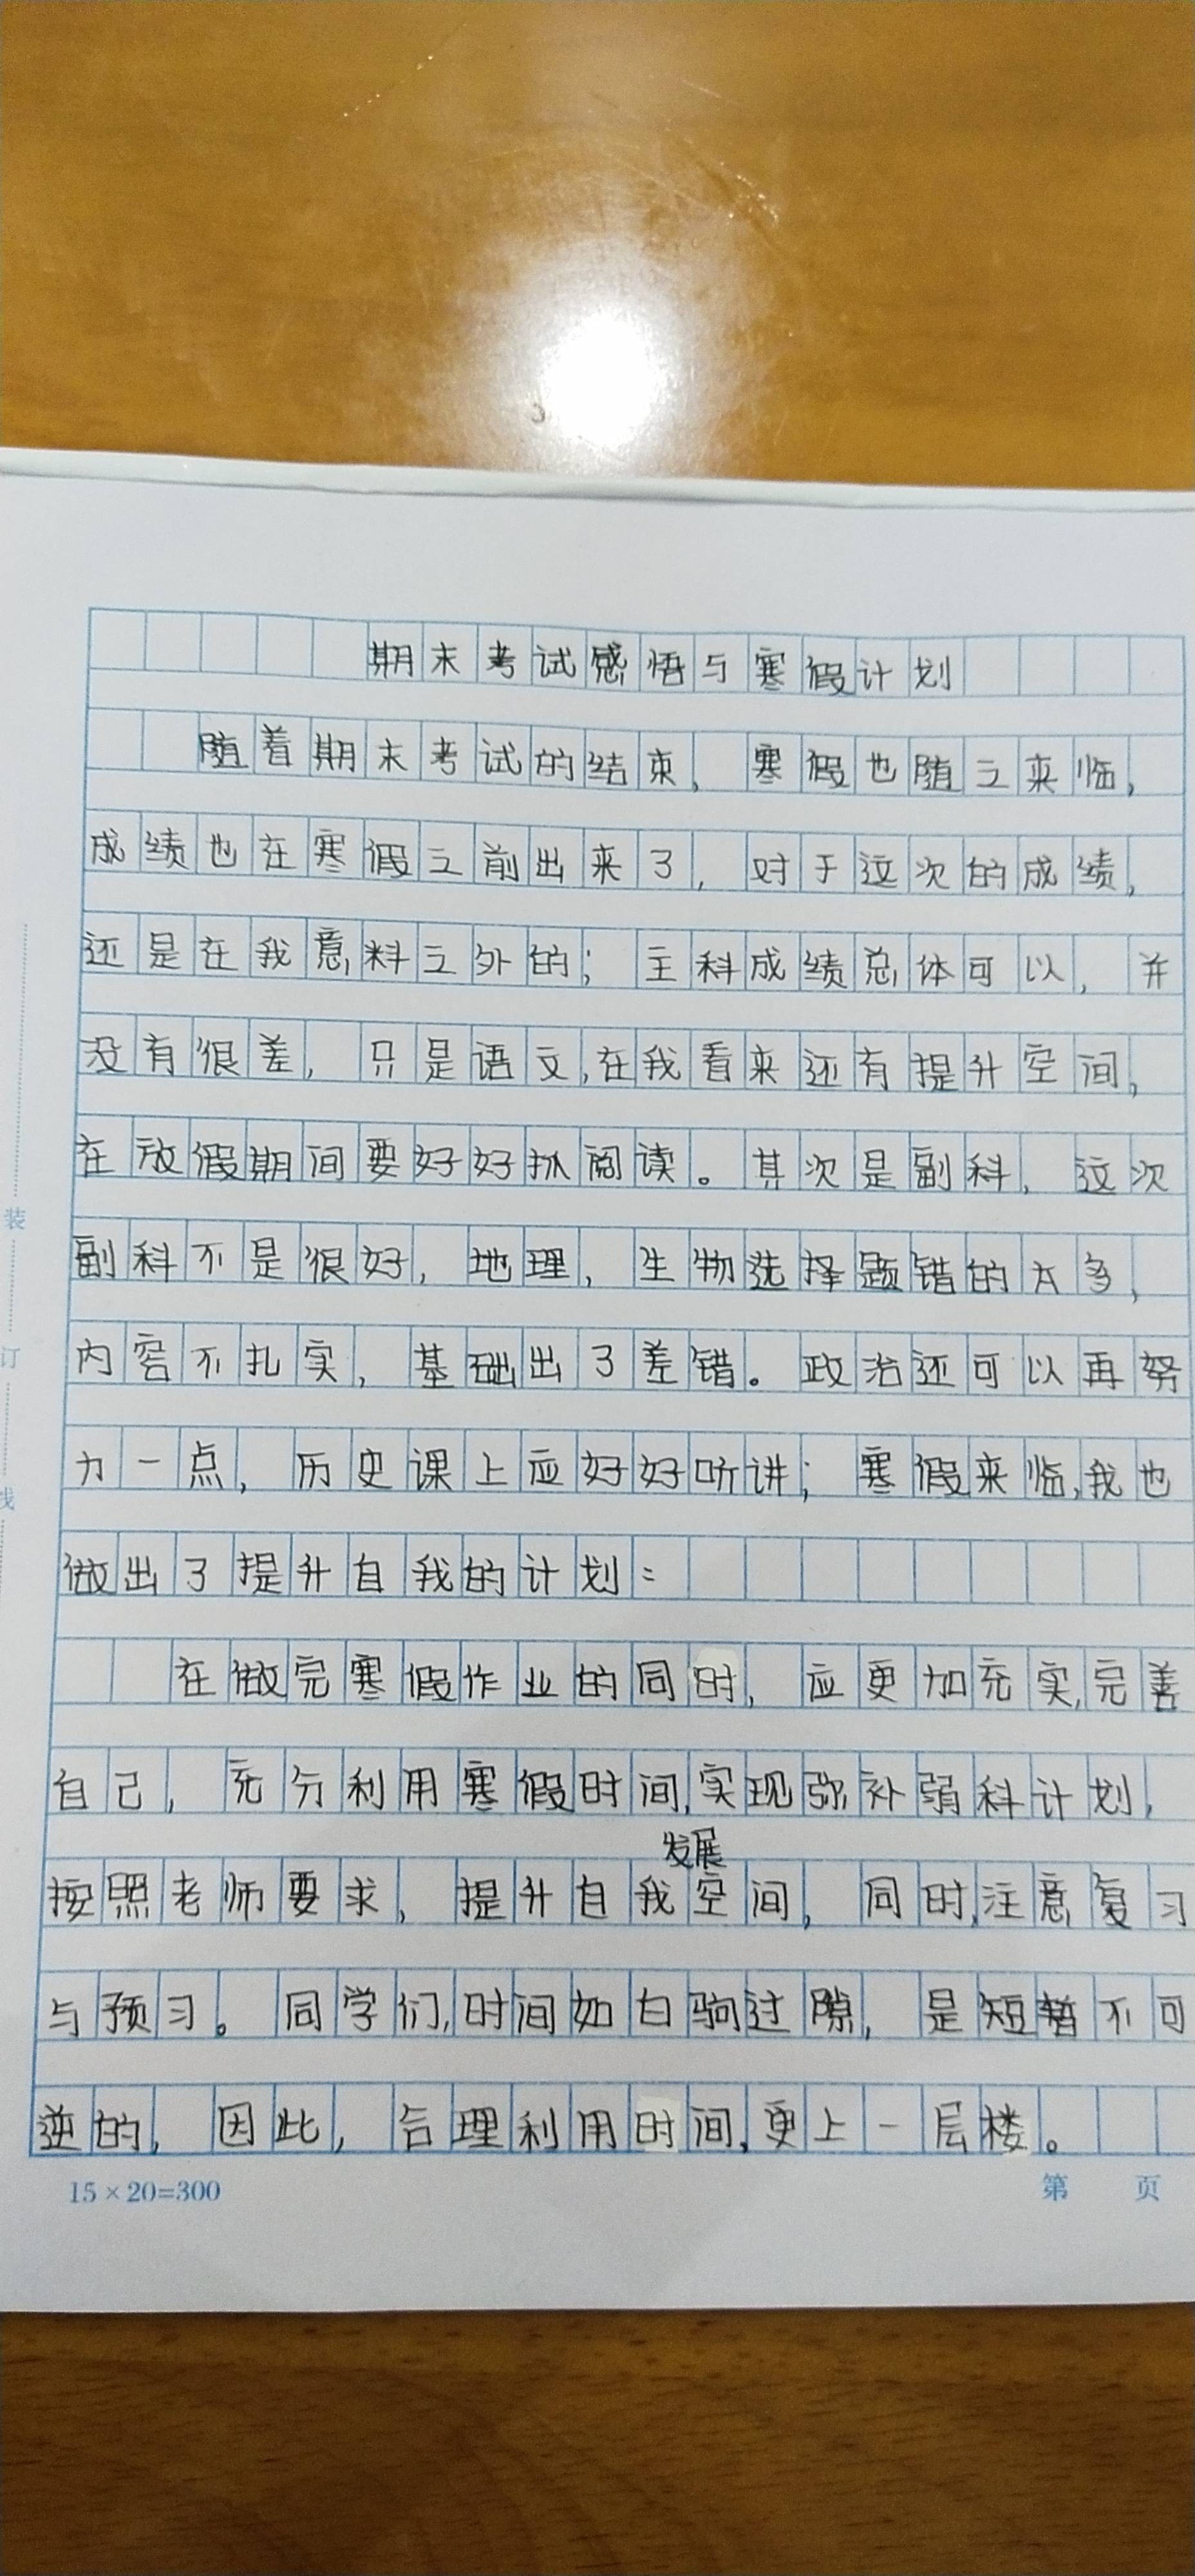 期末考试感悟与寒假计划
随着期末考试的结束,寒假也随之来临,
成绩也在寒假之前出来了,对于这次的成绩,
还是在我意料之外的;主科成绩总体可以,并
没有很差,只是语文,在我看来还有提升空间,
在放假期间要好好抓阅读。其次是副科,这次
副科不是很好,地理,生物选择题错的太多,
内容不扎实,基础出了差错。政治还可以再努
力一点,历史课上应好好听讲;寒假来临,我也
做出了提升自我的计划:
在做完寒假作业的同时,应更加充实,完善
自己,充分利用寒假时间,实现弥补弱科计划,
发展
按照老师要求,提升自我空间,同时,注意复习
与预习。同学们,时间如白驹过隙,是短暂不可
逆的,因此,合理利用时间,更上一层楼。
15×20=300
第 页
装
订
线